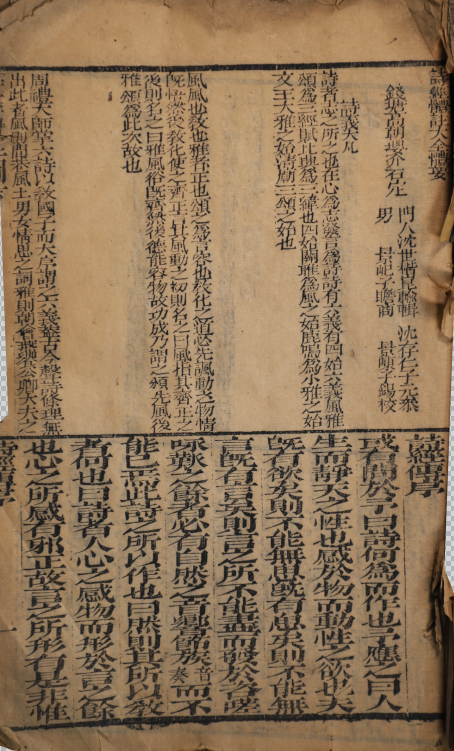 詩經體註大全體要
錢塘高朝瓔介石先生 門人沈世楷昆輸輯 沈存仁子元泰
男
詩義大凡
詩者志之所之也在心為志發言為詩詩有六義有四始六義風雅
頌為三經賦比興為三緯也四始關雎為風之始鹿鳴為小雅之始
文王大雅之始清廟三頌之始也
風風也教也雅者正也頌之為言容也教化之道必先諷動之物情
既悟然後教化使之齊正言其風動之初則名之曰風指其齊正之
後則名之曰雅風俗既齊然後德能容物故功成乃謂之頌先風後
雅頌為此次故也
周禮太師掌六詩以教國子而大序謂之六義蓋古今聲詩條理無
出此者風則閭巷風土男女情思之詞雅則朝會燕享公卿大夫之
詩經傳序
或有問於予曰詩何為而作也予應之曰人
生而靜天之性也感於物而動性之欲也夫
既有欲矣則不能無思既有思矣則不能無
言既有言矣則言之所不能盡而發於咨嗟
咏歎之餘者必有自然之音響節族音奏而不
能已焉此詩之所以作也曰然則其所以教
者何也曰詩者人心之感物而形於言之餘
也心之所感有邪正故言之所形有是非惟
詩經傳序 一